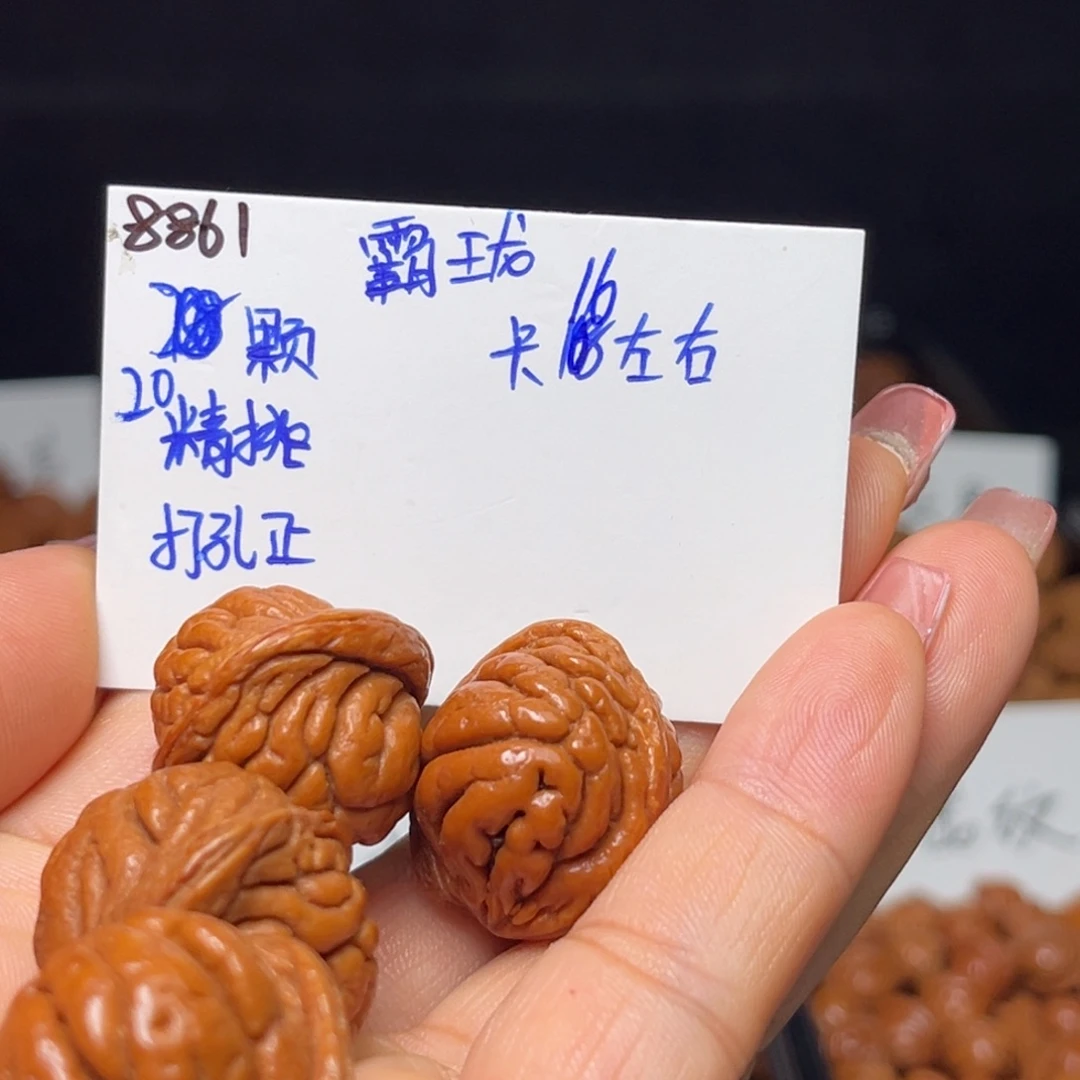 8861
霸王龙
颗
卡16左右
20
精挑
打孔正